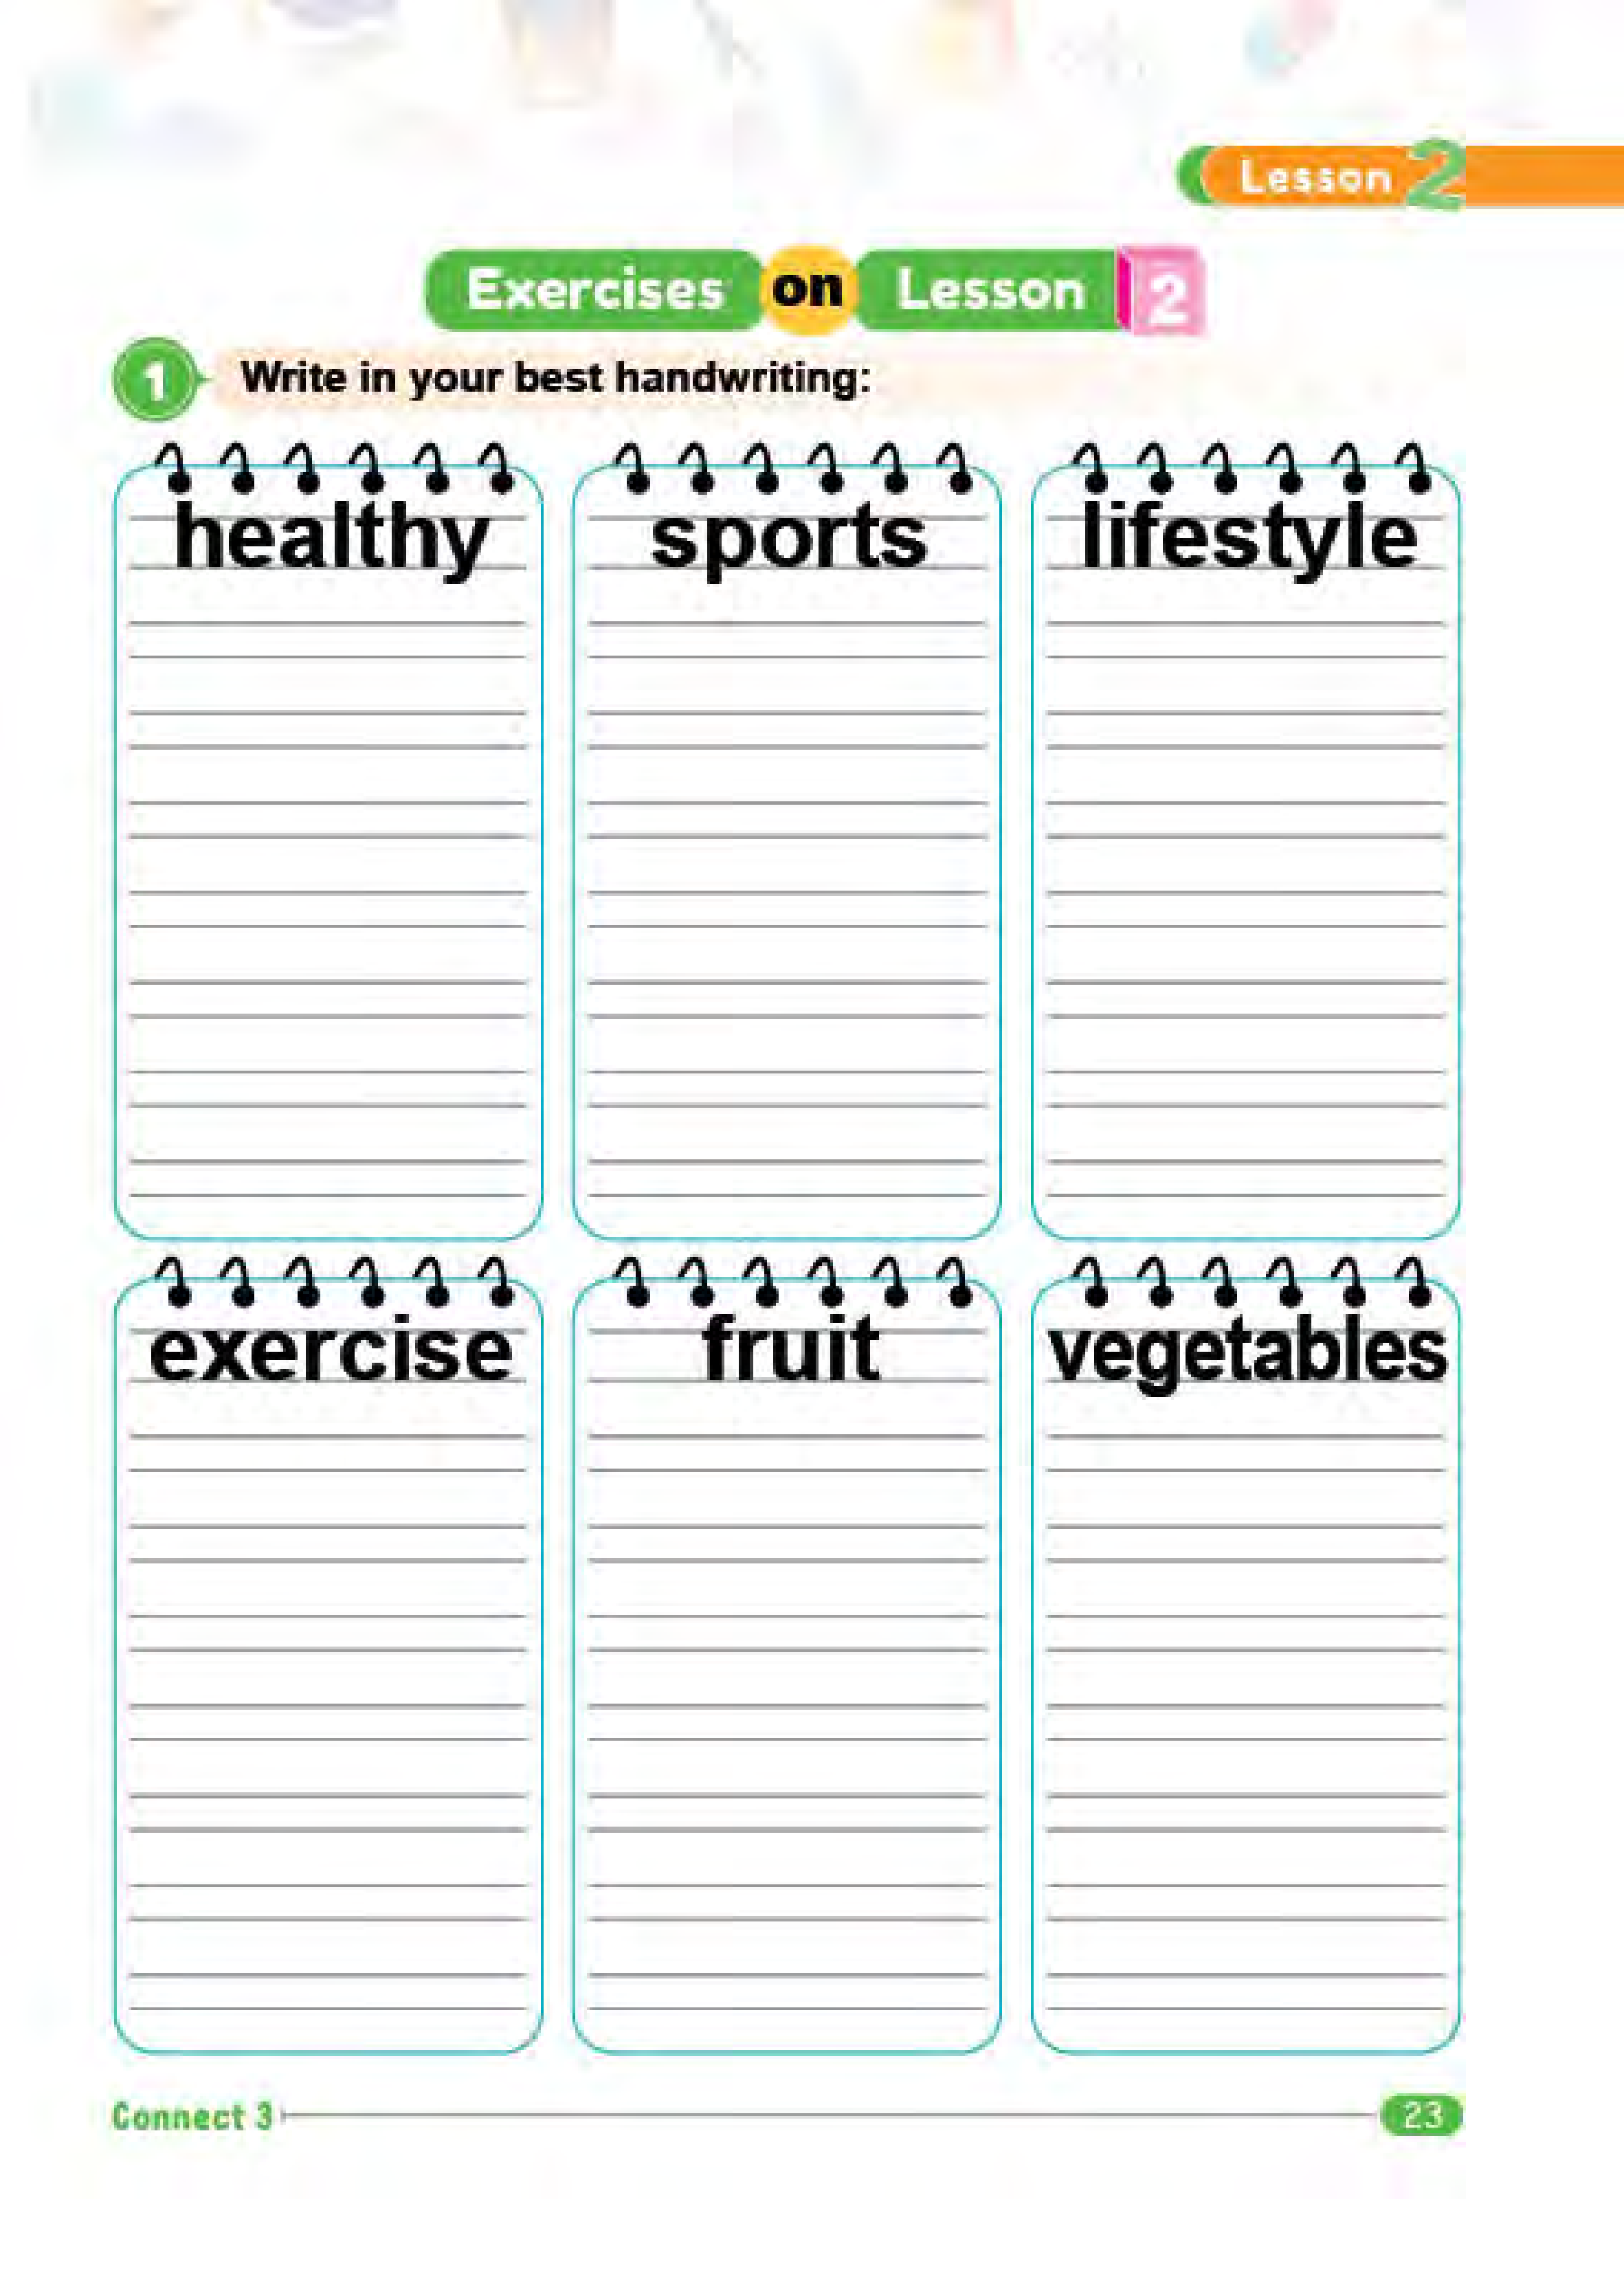 Lesson 2
Exercises on Lesson 2
1 Write in your best handwriting:
healthy sports lifestyle
exercise fruit vegetables
Connect 3 23